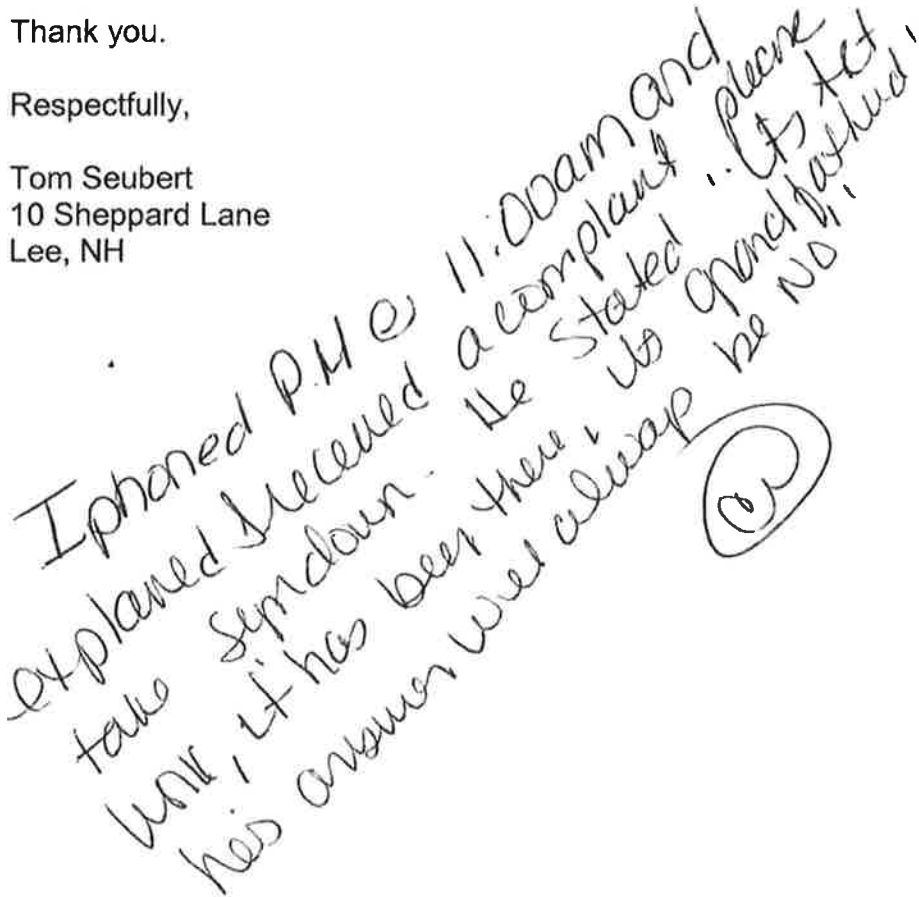 Thank you.
Respectfully,
Tom Seubert
10 Sheppard Lane
Lee, NH
I phoned P.H @ 11:00am and
explained I received a complaint please
take sign down. He stated "Its
work, it has been there, its grandfathered"
his answer will always be No".